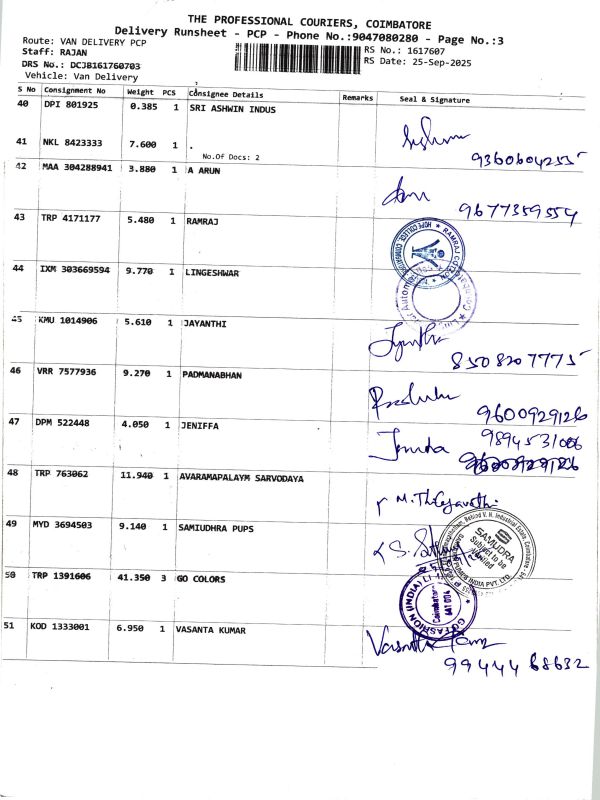 THE PROFESSIONAL COURIERS, COIMBATORE
Delivery Runsheet - PCP - Phone No.:9047080280 - Page No.:3
Route: VAN DELIVERY PCP
RS No.: 1617607
Staff: RAJAN
RS Date: 25-Sep-2025
DRS No.: DCJB161760703
Vehicle: Van Delivery
S No Consignment No Weight PCS Consignee Details Remarks Seal & Signature
40 DPI 801925 0.385 1 SRI ASHWIN INDUS
41 NKL 8423333 7.600 1 .
No.Of Docs: 2
9360604255
42 MAA 304288941 3.880 1 A ARUN
9677359554
43 TRP 4171177 5.480 1 RAMRAJ
RAMRAJ COTTON
44 IXM 303669594 9.770 1 LINGESHWAR
45 KMU 1014906 5.610 1 JAYANTHI
8508207775
46 VRR 7577936 9.270 1 PADMANABHAN
9600929126
47 DPM 522448 4.050 1 JENIFFA
9894531006
48 TRP 763062 11.940 1 AVARAMAPALAYM SARVODAYA
49 MYD 3694503 9.140 1 SAMIUDHRA PUPS
SAMUDRA
Subject to be
Verified
PUMPS INDIA PVT. LTD.
50 TRP 1391606 41.350 3 GO COLORS
GO FASHION (INDIA) LI
Coimbatore
641 004
51 KOD 1333001 6.950 1 VASANTA KUMAR
99444 68632